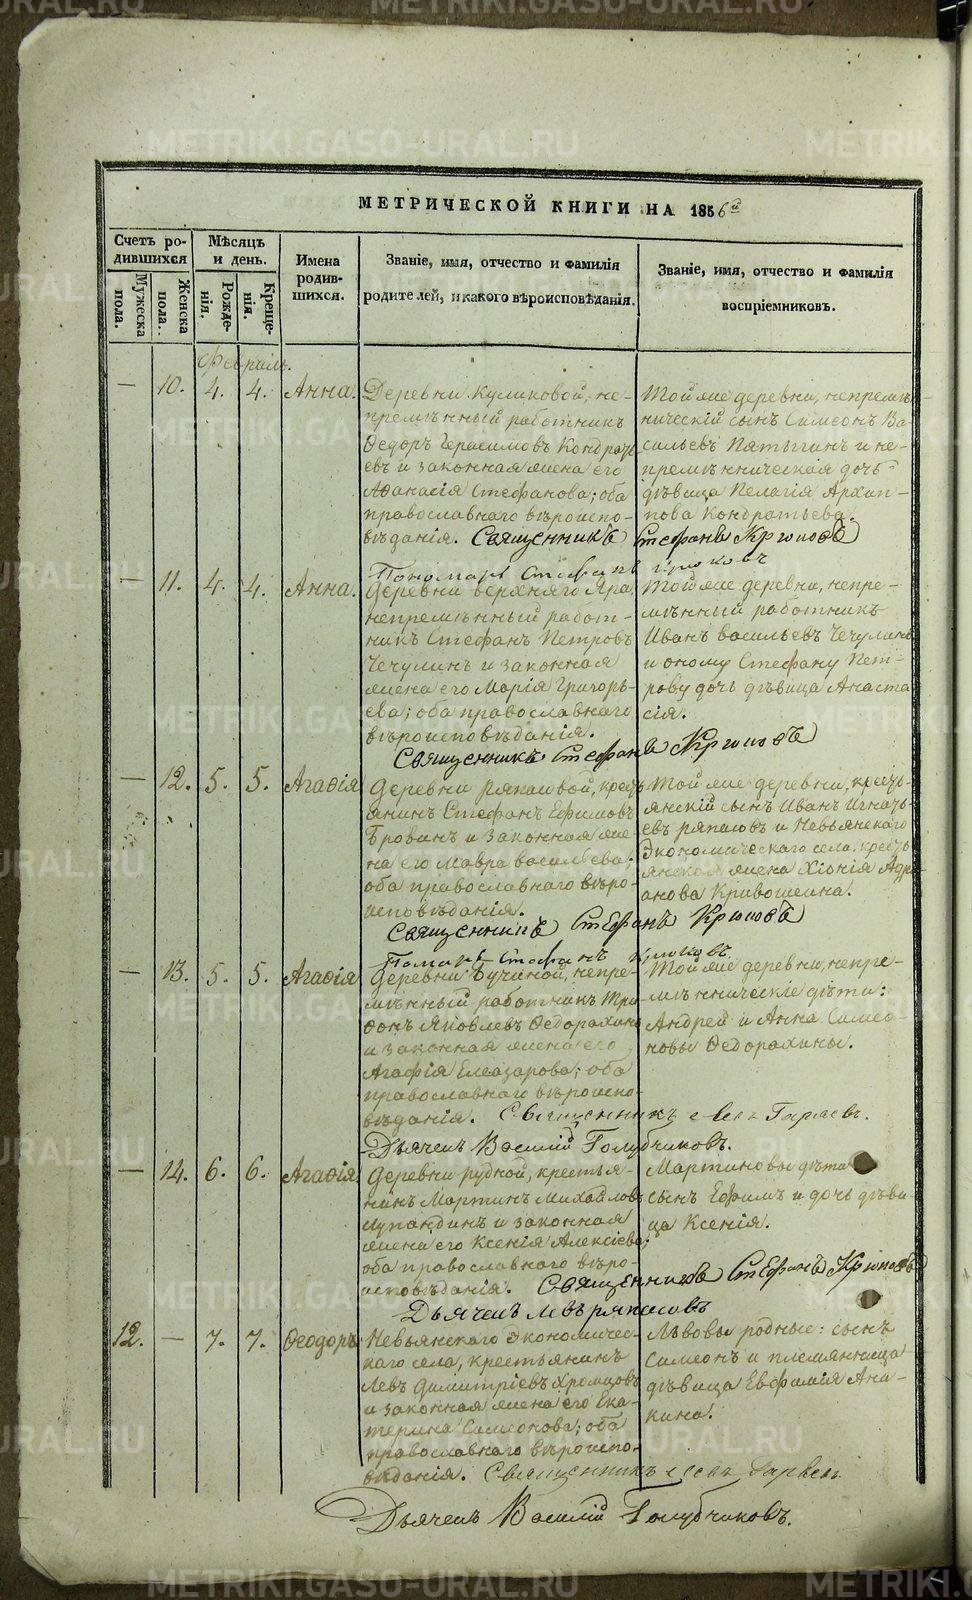 МЕТРИЧЕСКОЙ КНИГИ НА 1856й
Счетъ родившихся
Мужеска пола.
Женска пола.
Мѣсяцъ и день.
Рожденія.
Крещенія.
Имена родившихся.
Званіе, имя, отчество и фамилія
родителей, и какого вѣроисповѣданія.
Званіе, имя, отчество и фамилія
воспріемниковъ.
Февраль.
— 10. 4. 4. Анна.
Деревни Куликовой, не-
премѣнный работникъ
Ѳедоръ Герасимовъ Кондрать-
евъ и законная жена его
Аѳанасія Стефанова; оба
православнаго вѣроиспо-
вѣданія. Священникъ Стефанъ Крюковъ
Пономарь Стефанъ Крюковъ
Той же деревни, непремѣн-
ническій сынъ Симеонъ Ва-
сильевъ Пятыгинъ и не-
премѣнническая дочь
дѣвица Пелагія Архип-
пова Кондратьева.
— 11. 4. 4. Анна.
Деревни верхняго Яра,
непремѣнный работ-
никъ Стефанъ Петровъ
Чечулинъ и законная
жена его Марія Григорь-
ева; оба православнаго
вѣроисповѣданія.
Священникъ Стефанъ Крюковъ
Той же деревни, непре-
мѣнный работникъ
Иванъ Васильевъ Чечулинъ
и оному Стефану Пет-
рову дочь дѣвица Анаста-
сія.
— 12. 5. 5. Агаѳія
Деревни Ряпасовой, кресть-
янинъ Стефанъ Ефимовъ
Бровинъ и законная же-
на его Мавра Васильева;
оба православнаго вѣро-
исповѣданія.
Священникъ Стефанъ Крюковъ
Стефанъ Крюковъ
Той же деревни, кресть-
янскій сынъ Иванъ Игнать-
евъ Ряпасовъ и Невьянскаго
экономическаго села, кресть-
янская жена Хіонія Адрі-
анова Кривошеина.
— 13. 5. 5. Агаѳія
Деревни Бучиной, непре-
мѣнный работникъ Три-
фонъ Яковлевъ Ѳедорахинъ
и законная жена его
Агафія Елеазарова; оба
православнаго вѣроиспо-
вѣданія. Священникъ
Дьячекъ Василій Голубчиковъ.
Той же деревни, непре-
мѣнническіе дѣти:
Андрей и Анна Симео-
новы Ѳедорахины.
— 14. 6. 6. Агаѳія
Деревни Рудной, крестья-
нинъ Мартинъ Михайловъ
Лупандинъ и законная
жена его Ксенія Алексіева;
оба православнаго вѣро-
исповѣданія. Священникъ Стефанъ Крюковъ
Дьячекъ Левъ Ряпасовъ
Мартиновы дѣти
сынъ Ефимъ и дочь дѣви-
ца Ксенія.
12. — 7. 7. Ѳеодоръ
Невьянскаго экономичес-
каго села, крестьянинъ
Левъ Димитріевъ Хромцовъ
и законная жена его Ека-
терина Симеонова; оба
православнаго вѣроиспо-
вѣданія. Священникъ
Дьячекъ Василій Голубчиковъ.
Львовы родные: сынъ
Симеонъ и племянница
дѣвица Евфимія Ани-
кина.
METRIKI.GASO-URAL.RU